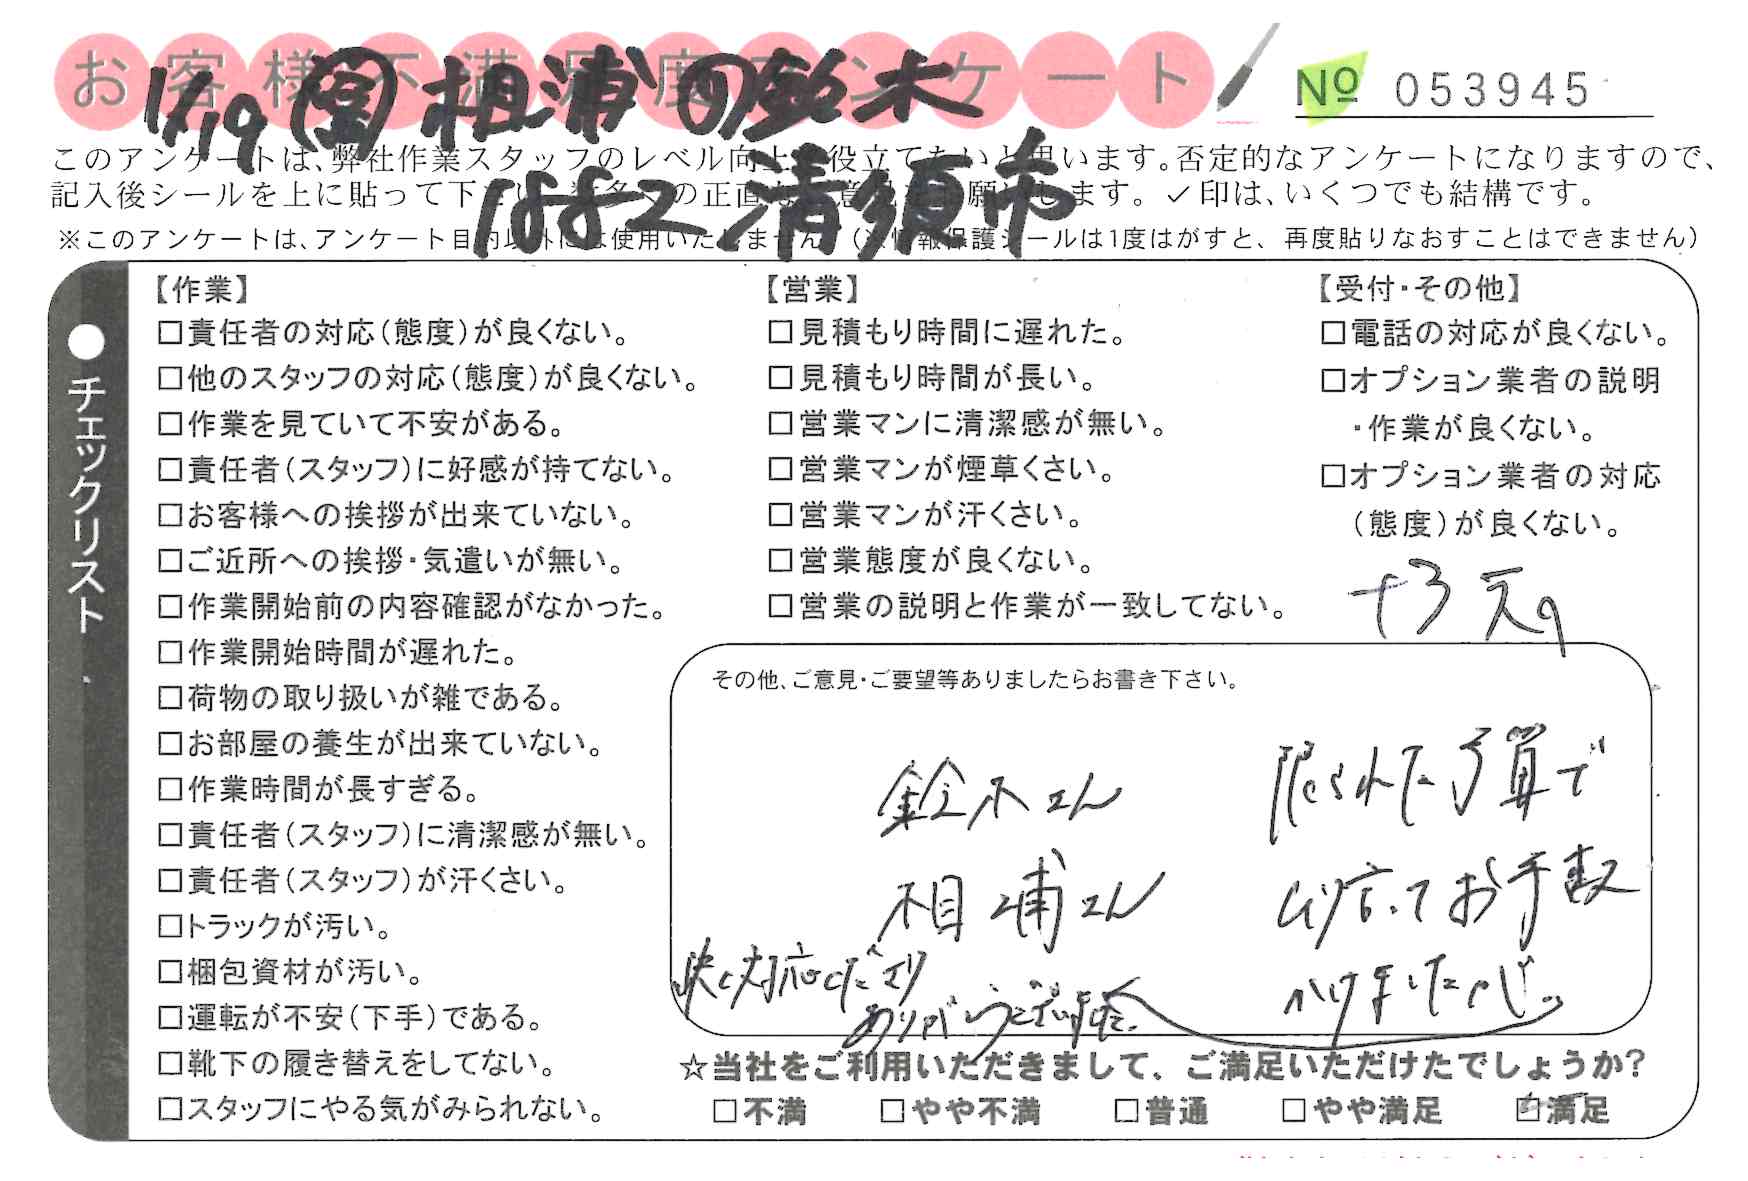 お客様不満足度アンケート
№ 053945
1/19 相浦 鈴木
1882 清須市
このアンケートは、弊社作業スタッフのレベル向上に役立てたいと思います。否定的なアンケートになりますので、
記入後シールを上に貼って下さい。数多くの正直なご意見をお願いします。✓印は、いくつでも結構です。
※このアンケートは、アンケート目的以外には使用いたしません。(※情報保護シールは1度はがすと、再度貼りなおすことはできません)
●チェックリスト
【作業】
□責任者の対応(態度)が良くない。
□他のスタッフの対応(態度)が良くない。
□作業を見ていて不安がある。
□責任者(スタッフ)に好感が持てない。
□お客様への挨拶が出来ていない。
□ご近所への挨拶・気遣いが無い。
□作業開始前の内容確認がなかった。
□作業開始時間が遅れた。
□荷物の取り扱いが雑である。
□お部屋の養生が出来ていない。
□作業時間が長すぎる。
□責任者(スタッフ)に清潔感が無い。
□責任者(スタッフ)が汗くさい。
□トラックが汚い。
□梱包資材が汚い。
□運転が不安(下手)である。
□靴下の履き替えをしてない。
□スタッフにやる気がみられない。
【営業】
□見積もり時間に遅れた。
□見積もり時間が長い。
□営業マンに清潔感が無い。
□営業マンが煙草くさい。
□営業マンが汗くさい。
□営業態度が良くない。
□営業の説明と作業が一致してない。
【受付・その他】
□電話の対応が良くない。
□オプション業者の説明
・作業が良くない。
□オプション業者の対応
(態度)が良くない。
その他、ご意見・ご要望等ありましたらお書き下さい。
限られた予算で
お手数
かけましたが
鈴木さん
相浦さん
快く対応くださり
ありがとうございました。
☆当社をご利用いただきまして、ご満足いただけたでしょうか?
□不満 □やや不満 □普通 □やや満足 ☑満足